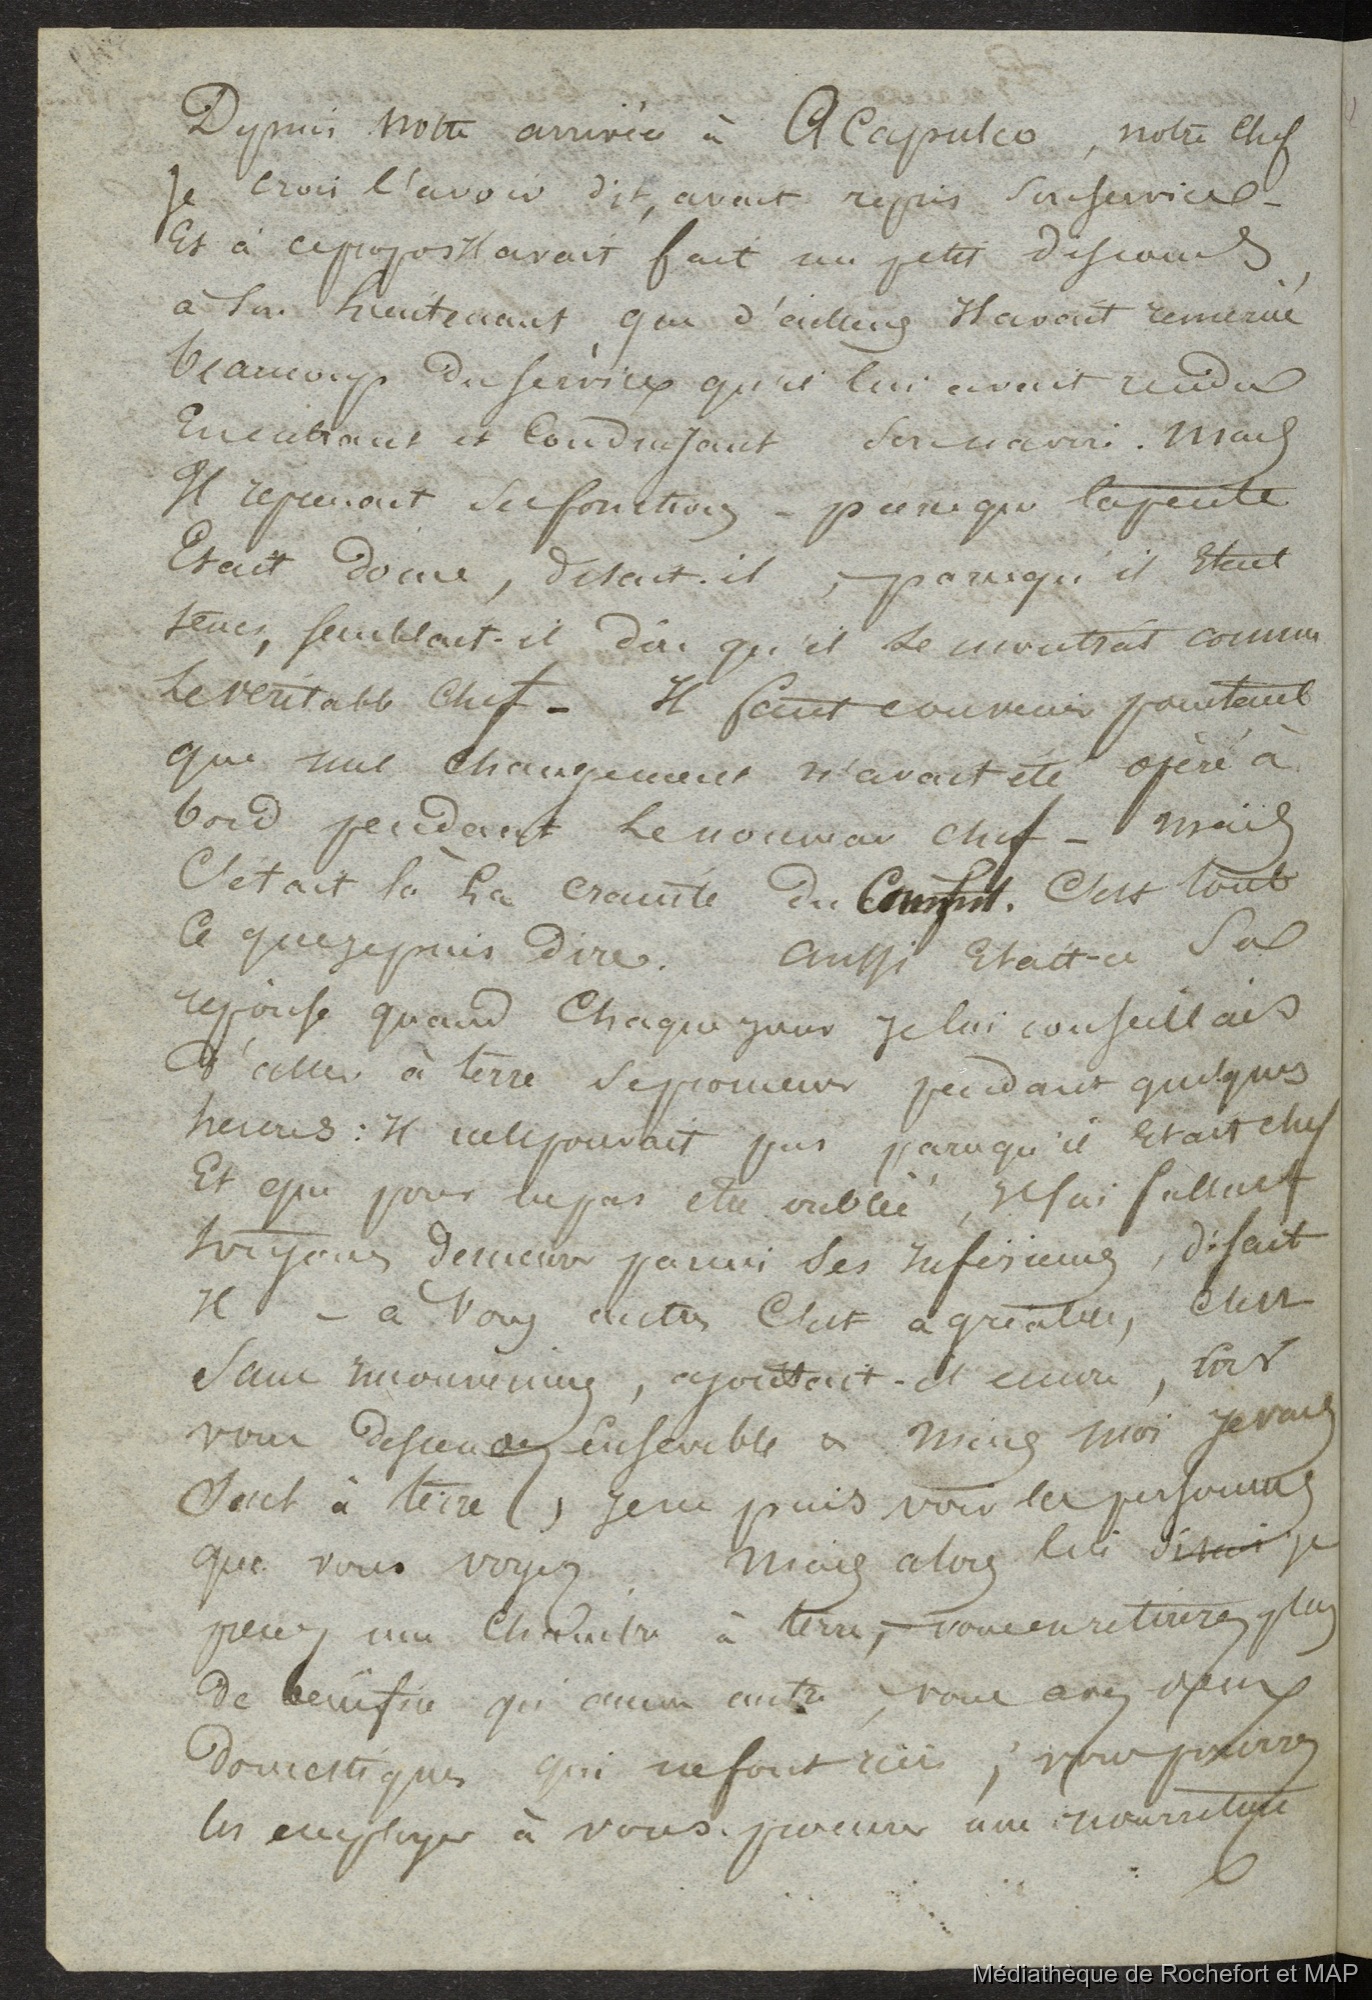 Depuis notre arrivée à Acapulco, notre chef
je crois l'avoir dit, avait repris son service -
Et à ce propos Il avait fait un petit discours,
à son lieutenant que d'ailleurs Il avait remercié
beaucoup du service qu'il lui avait rendu
En entrant et Conduisant son navire. Mais
Il reprenait ses fonctions - parceque la peule
Etait donne, disait-il, parcequ'il Etait
tems, semblait-il dire qu'il se montrât comme
Le véritable chef - Il faut convenir pourtant
que nul changement n'avait été opéré à
bord pendant le nouveau chef - mais
C'était là La crainte du C'est tout
Ce que je puis dire. aussi Etait-ce Sa
réponse quand Chaque jour je lui conseillais
d'aller à terre se promener pendant quelques
heures : Il ne le pouvait pas parcequ'il Etait chef
Et que pour ne pas être oublié, Il lui fallait
toujours demeurer parmi ses inférieurs, disait
Il - à Vous autres C'est agréable, C'est
Sans inconvéniens, ajoutait-il encore, car
vous descendez Ensemble & Mais moi Je vais
Seul à terre (, Je ne puis voir les personnes
que vous voyez Mais alors lui disais je
prenez une Chambre à terre, vous en retirerez plus
de bénéfice qu'aucun autre, vous avez deux
domestiques qui ne font rien, vous pourrez
les employer à vous procurer une nourriture
Médiathèque de Rochefort et MAP